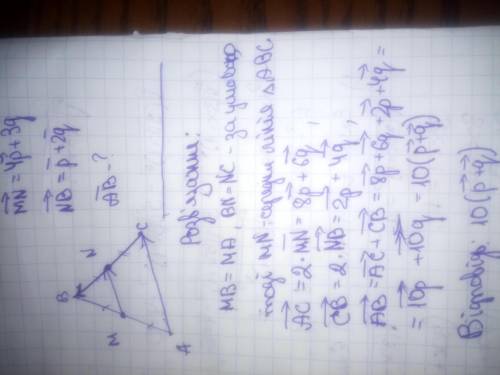 B
N
M
C
A
MN = 4p + 3q
NB = p + 2q
AB - ?
Розв'язання:
MB = MA, BN = NC - за умовою,
тоді MN - середня лінія △ABC
AC = 2 · MN = 8p + 6q,
CB = 2 · NB = 2p + 4q,
AB = AC + CB = 8p + 6q + 2p + 4q =
= 10p + 10q = 10(p+q)
Відповідь: 10(p+q)